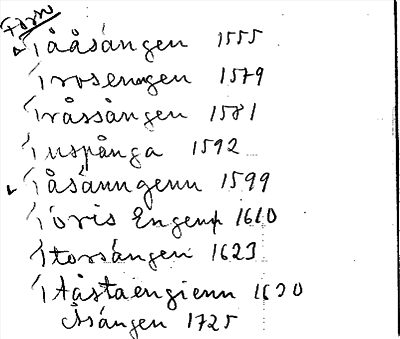 Form
i ååsången 1555
i rosenengen 1579
i råssången 1581
i uspånga 1592
i åsånngenn 1599
i oris Engenn 1610
i torsången 1623
i Aåstaengienn 1630
Åsången 1725